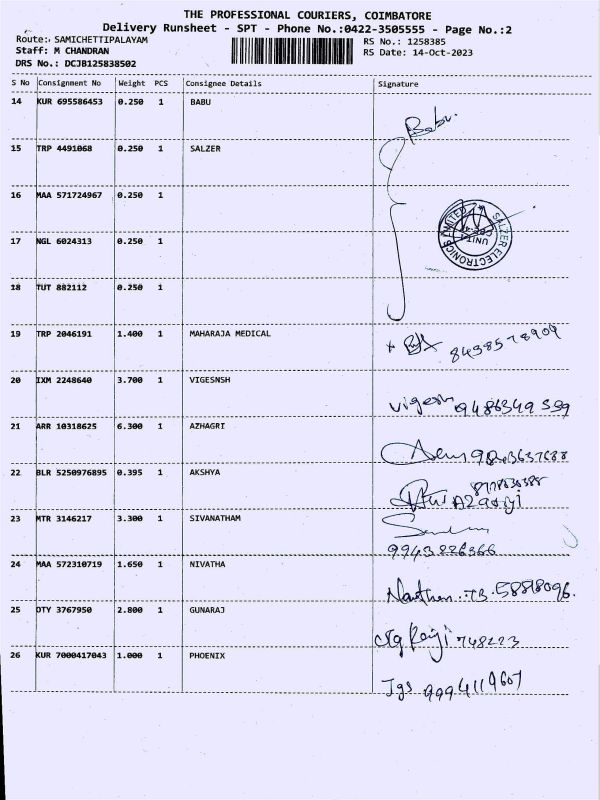 THE PROFESSIONAL COURIERS, COIMBATORE
Delivery Runsheet - SPT - Phone No.:0422-3505555 - Page No.:2
Route: SAMICHETTIPALAYAM
RS No.: 1258385
Staff: M CHANDRAN
RS Date: 14-Oct-2023
DRS No.: DCJB125838502
S No Consignment No Weight PCS Consignee Details Signature
14 KUR 695586453 0.250 1 BABU Babu.
15 TRP 4491068 0.250 1 SALZER
16 MAA 571724967 0.250 1
SALZER ELECTRONICS LIMITED
UNIT-I
17 NGL 6024313 0.250 1
18 TUT 882112 0.250 1
19 TRP 2046191 1.400 1 MAHARAJA MEDICAL 8438578909
20 IXM 2248640 3.700 1 VIGESNSH
Vigesh 9486349599
21 ARR 10318625 6.300 1 AZHAGRI
22 BLR 5250976895 0.395 1 AKSHYA
23 MTR 3146217 3.300 1 SIVANATHAM
9943226366
24 MAA 572310719 1.650 1 NIVATHA
25 OTY 3767950 2.800 1 GUNARAJ
748223
26 KUR 7000417043 1.000 1 PHOENIX
Jgs 9994119607